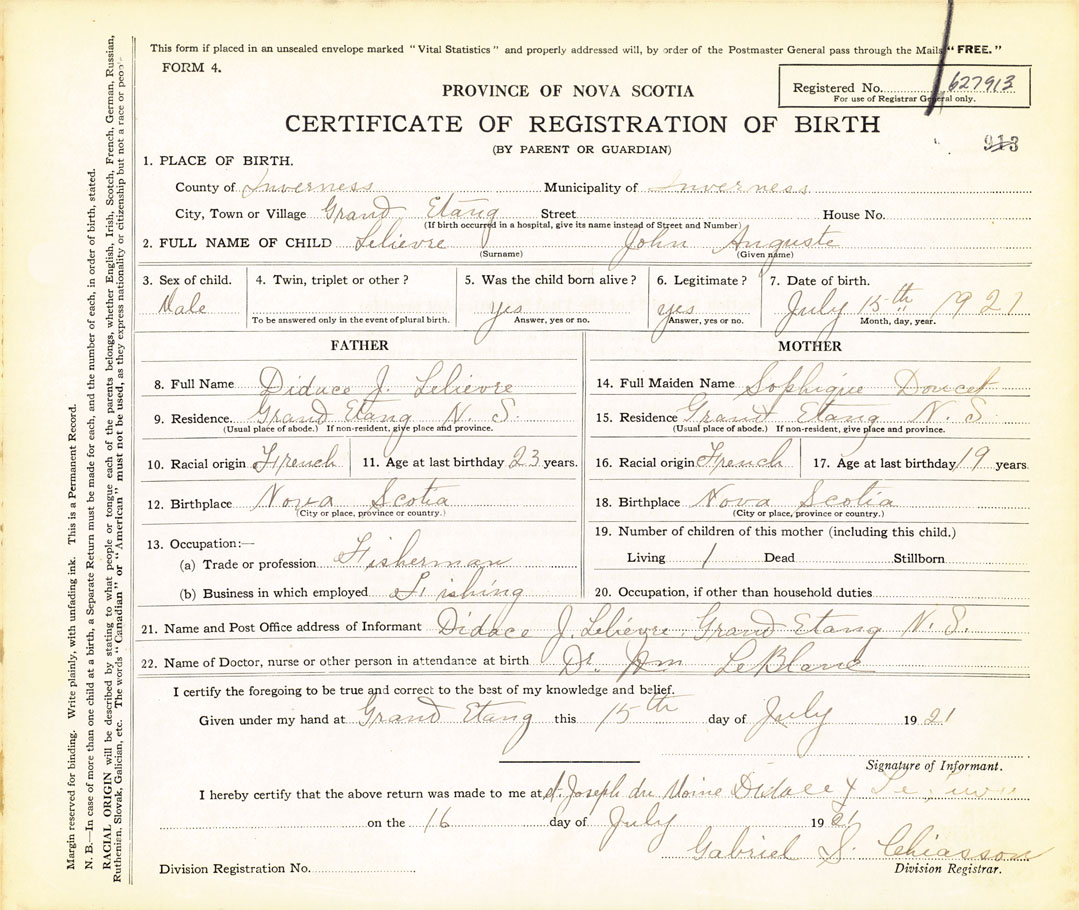 This form if placed in an unsealed envelope marked "Vital Statistics" and properly addressed will, by order of the Postmaster General pass through the Mails "FREE."
FORM 4.
Registered No. 627913
For use of Registrar General only.
PROVINCE OF NOVA SCOTIA
CERTIFICATE OF REGISTRATION OF BIRTH
(BY PARENT OR GUARDIAN)
913
1. PLACE OF BIRTH.
County of Inverness Municipality of Inverness
City, Town or Village Grand Etang Street House No.
(If birth occurred in a hospital, give its name instead of Street and Number)
2. FULL NAME OF CHILD Lelievre John Auguste
(Surname) (Given name)
3. Sex of child. 4. Twin, triplet or other? 5. Was the child born alive? 6. Legitimate? 7. Date of birth.
Male yes yes July 15th 1921
To be answered only in the event of plural birth. Answer, yes or no. Answer, yes or no. Month, day, year.
FATHER MOTHER
8. Full Name Didace J. Lelievre 14. Full Maiden Name Sophique Doucet
9. Residence Grand Etang N. S. 15. Residence Grand Etang N. S
(Usual place of abode.) If non-resident, give place and province. (Usual place of abode.) If non-resident, give place and province.
10. Racial origin French 11. Age at last birthday 23 years. 16. Racial origin French 17. Age at last birthday 19 years.
12. Birthplace Nova Scotia 18. Birthplace Nova Scotia
(City or place, province or country.) (City or place, province or country.)
13. Occupation:— 19. Number of children of this mother (including this child.)
(a) Trade or profession Fisherman Living 1 Dead Stillborn
(b) Business in which employed Fishing 20. Occupation, if other than household duties
21. Name and Post Office address of Informant Didace J. Lelièvre, Grand Etang N. S.
22. Name of Doctor, nurse or other person in attendance at birth Dr. Wm LeBlanc
I certify the foregoing to be true and correct to the best of my knowledge and belief.
Given under my hand at Grand Etang this 15th day of July 1921
Signature of Informant.
I hereby certify that the above return was made to me at St. Joseph du Moine Didace J
on the 16 day of July 1921
Gabriel S. Chiasson
Division Registration No. Division Registrar.
Margin reserved for binding. Write plainly, with unfading ink. This is a Permanent Record.
N. B.—In case of more than one child at a birth, a Separate Return must be made for each, and the number of each, in order of birth, stated.
RACIAL ORIGIN will be described by stating to what people or tongue each of the parents belongs, whether English, Irish, Scotch, French, German, Russian,
Ruthenian, Slovak, Galician, etc. The words "Canadian" or "American" must not be used, as they express nationality or citizenship but not a race or people